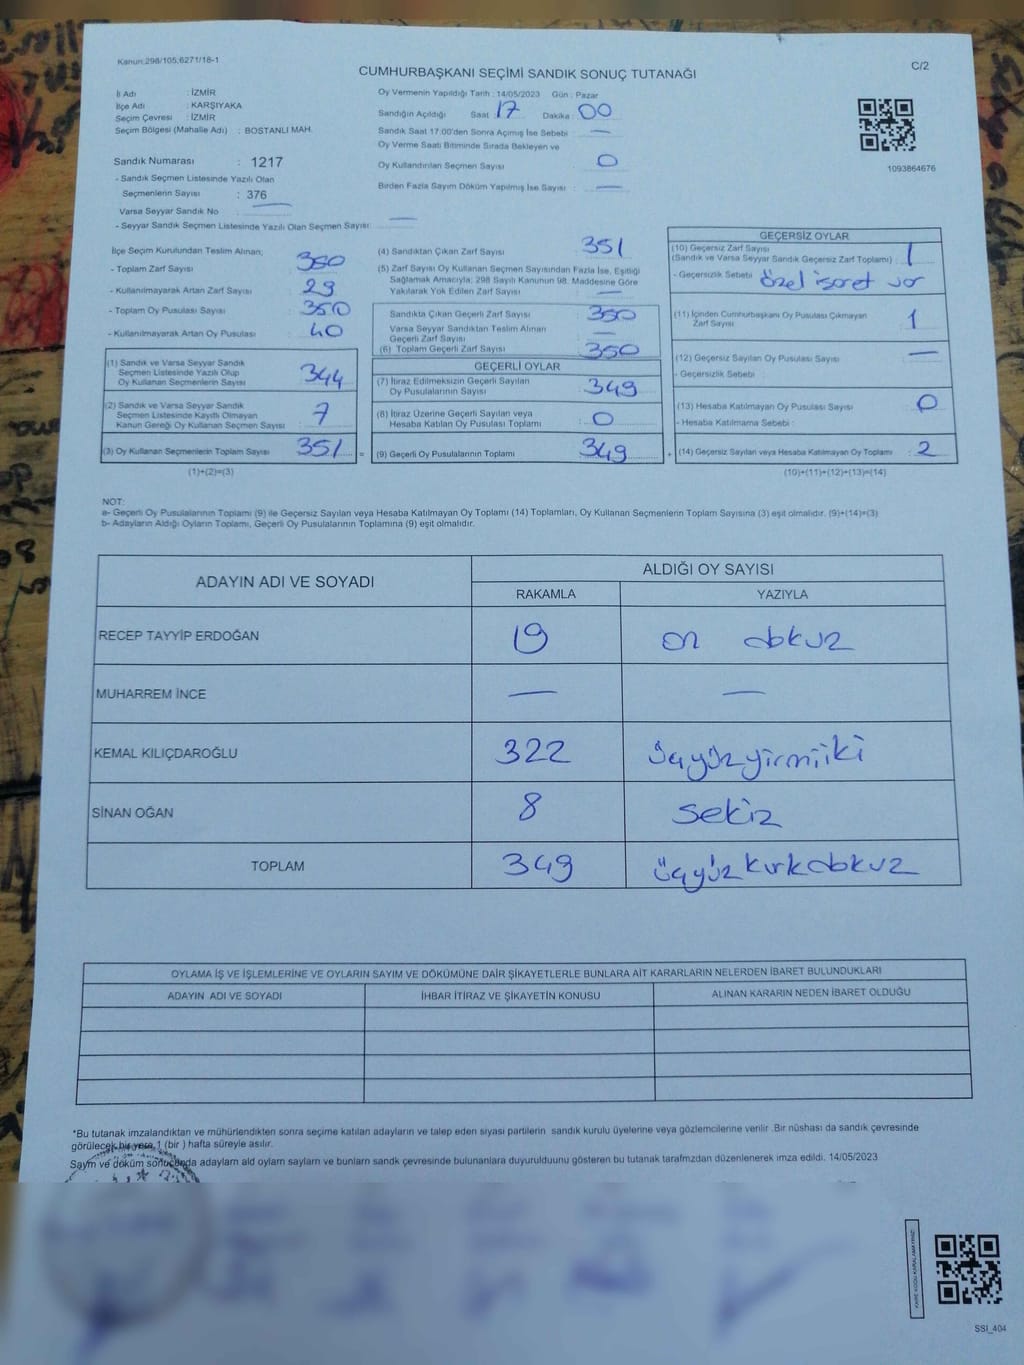 Kanun:298/105,6271/18-1
C/2
CUMHURBAŞKANI SEÇİMİ SANDIK SONUÇ TUTANAĞI
İl Adı : İZMİR
İlçe Adı : KARŞIYAKA
Seçim Çevresi : İZMİR
Seçim Bölgesi (Mahalle Adı) : BOSTANLI MAH.
Sandık Numarası : 1217
- Sandık Seçmen Listesinde Yazılı Olan
Seçmenlerin Sayısı : 376
Varsa Seyyar Sandık No —
- Seyyar Sandık Seçmen Listesinde Yazılı Olan Seçmen Sayısı —
Oy Vermenin Yapıldığı Tarih : 14/05/2023 Gün : Pazar
Sandığın Açıldığı Saat : 17 Dakika : 00
Sandık Saat 17.00'den Sonra Açımış İse Sebebi : —
Oy Verme Saati Bitiminde Sırada Bekleyen ve
Oy Kullandırılan Seçmen Sayısı 0
Birden Fazla Sayım Döküm Yapılmış İse Sayısı : —
1093864676
İlçe Seçim Kurulundan Teslim Alınan;
- Toplam Zarf Sayısı : 380
- Kullanılmayarak Artan Zarf Sayısı : 29
- Toplam Oy Pusulası Sayısı :
- Kullanılmayarak Artan Oy Pusulası : 40
(1) Sandık ve Varsa Seyyar Sandık
Seçmen Listesinde Yazılı Olup
Oy Kullanan Seçmenlerin Sayısı : 344
(2) Sandık ve Varsa Seyyar Sandık
Seçmen Listesinde Kayıtlı Olmayan
Kanun Gereği Oy Kullanan Seçmen Sayısı : 7
(3) Oy Kullanan Seçmenlerin Toplam Sayısı : 351
(1)+(2)=(3)
(4) Sandıktan Çıkan Zarf Sayısı : 351
(5) Zarf Sayısı Oy Kullanan Seçmen Sayısından Fazla İse, Eşitliği
Sağlamak Amacıyla; 298 Sayılı Kanunun 98. Maddesine Göre
Yakılarak Yok Edilen Zarf Sayısı : —
Sandıkta Çıkan Geçerli Zarf Sayısı : 350
Varsa Seyyar Sandıktan Teslim Alınan
Geçerli Zarf Sayısı : —
(6) Toplam Geçerli Zarf Sayısı : 350
GEÇERLİ OYLAR
(7) İtiraz Edilmeksizin Geçerli Sayılan
Oy Pusulalarının Sayısı : 349
(8) İtiraz Üzerine Geçerli Sayılan veya
Hesaba Katılan Oy Pusulası Toplamı : 0
(9) Geçerli Oy Pusulalarının Toplamı : 349
GEÇERSİZ OYLAR
(10) Geçersiz Zarf Sayısı
(Sandık ve Varsa Seyyar Sandık Geçersiz Zarf Toplamı) : 1
- Geçersizlik Sebebi : özel işaret var
(11) İçinden Cumhurbaşkanı Oy Pusulası Çıkmayan
Zarf Sayısı : 1
(12) Geçersiz Sayılan Oy Pusulası Sayısı : —
- Geçersizlik Sebebi :
(13) Hesaba Katılmayan Oy Pusulası Sayısı : 0
- Hesaba Katılmama Sebebi :
(14) Geçersiz Sayılan veya Hesaba Katılmayan Oy Toplamı : 2
(10)+(11)+(12)+(13)=(14)
NOT:
a- Geçerli Oy Pusulalarının Toplamı (9) ile Geçersiz Sayılan veya Hesaba Katılmayan Oy Toplamı (14) Toplamları, Oy Kullanan Seçmenlerin Toplam Sayısına (3) eşit olmalıdır. (9)+(14)=(3)
b- Adayların Aldığı Oyların Toplamı, Geçerli Oy Pusulalarının Toplamına (9) eşit olmalıdır.
ADAYIN ADI VE SOYADI ALDIĞI OY SAYISI
RAKAMLA YAZIYLA
RECEP TAYYİP ERDOĞAN 19 on dokuz
MUHARREM İNCE — —
KEMAL KILIÇDAROĞLU 322 üçyüzyirmiiki
SİNAN OĞAN 8 sekiz
TOPLAM 349 üçyüzkırkdokuz
OYLAMA İŞ VE İŞLEMLERİNE VE OYLARIN SAYIM VE DÖKÜMÜNE DAİR ŞİKAYETLERLE BUNLARA AİT KARARLARIN NELERDEN İBARET BULUNDUKLARI
ADAYIN ADI VE SOYADI İHBAR İTİRAZ VE ŞİKAYETİN KONUSU ALINAN KARARIN NEDEN İBARET OLDUĞU
*Bu tutanak imzalandıktan ve mühürlendikten sonra seçime katılan adayların ve talep eden siyasi partilerin sandık kurulu üyelerine veya gözlemcilerine verilir .Bir nüshası da sandık çevresinde
görülecek bir yere 1 (bir ) hafta süreyle asılır.
Sayım ve döküm sonucunda adayların ald oyların sayların ve bunların sandk çevresinde bulunanlara duyurulduunu gösteren bu tutanak tarafmzdan düzenlenerek imza edildi. 14/05/2023
SSI_404